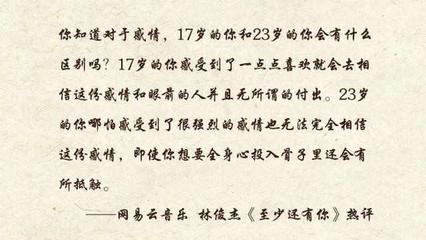 你知道对于感情，17岁的你和23岁的你会有什么
区别吗？17岁的你感受到了一点点喜欢就会去相
信这份感情和眼前的人并且无所谓的付出。23岁
的你哪怕感受到了很强烈的感情也无法完全相信
这份感情，即使你想要全身心投入骨子里还会有
所抵触。
——网易云音乐 林俊杰《至少还有你》热评